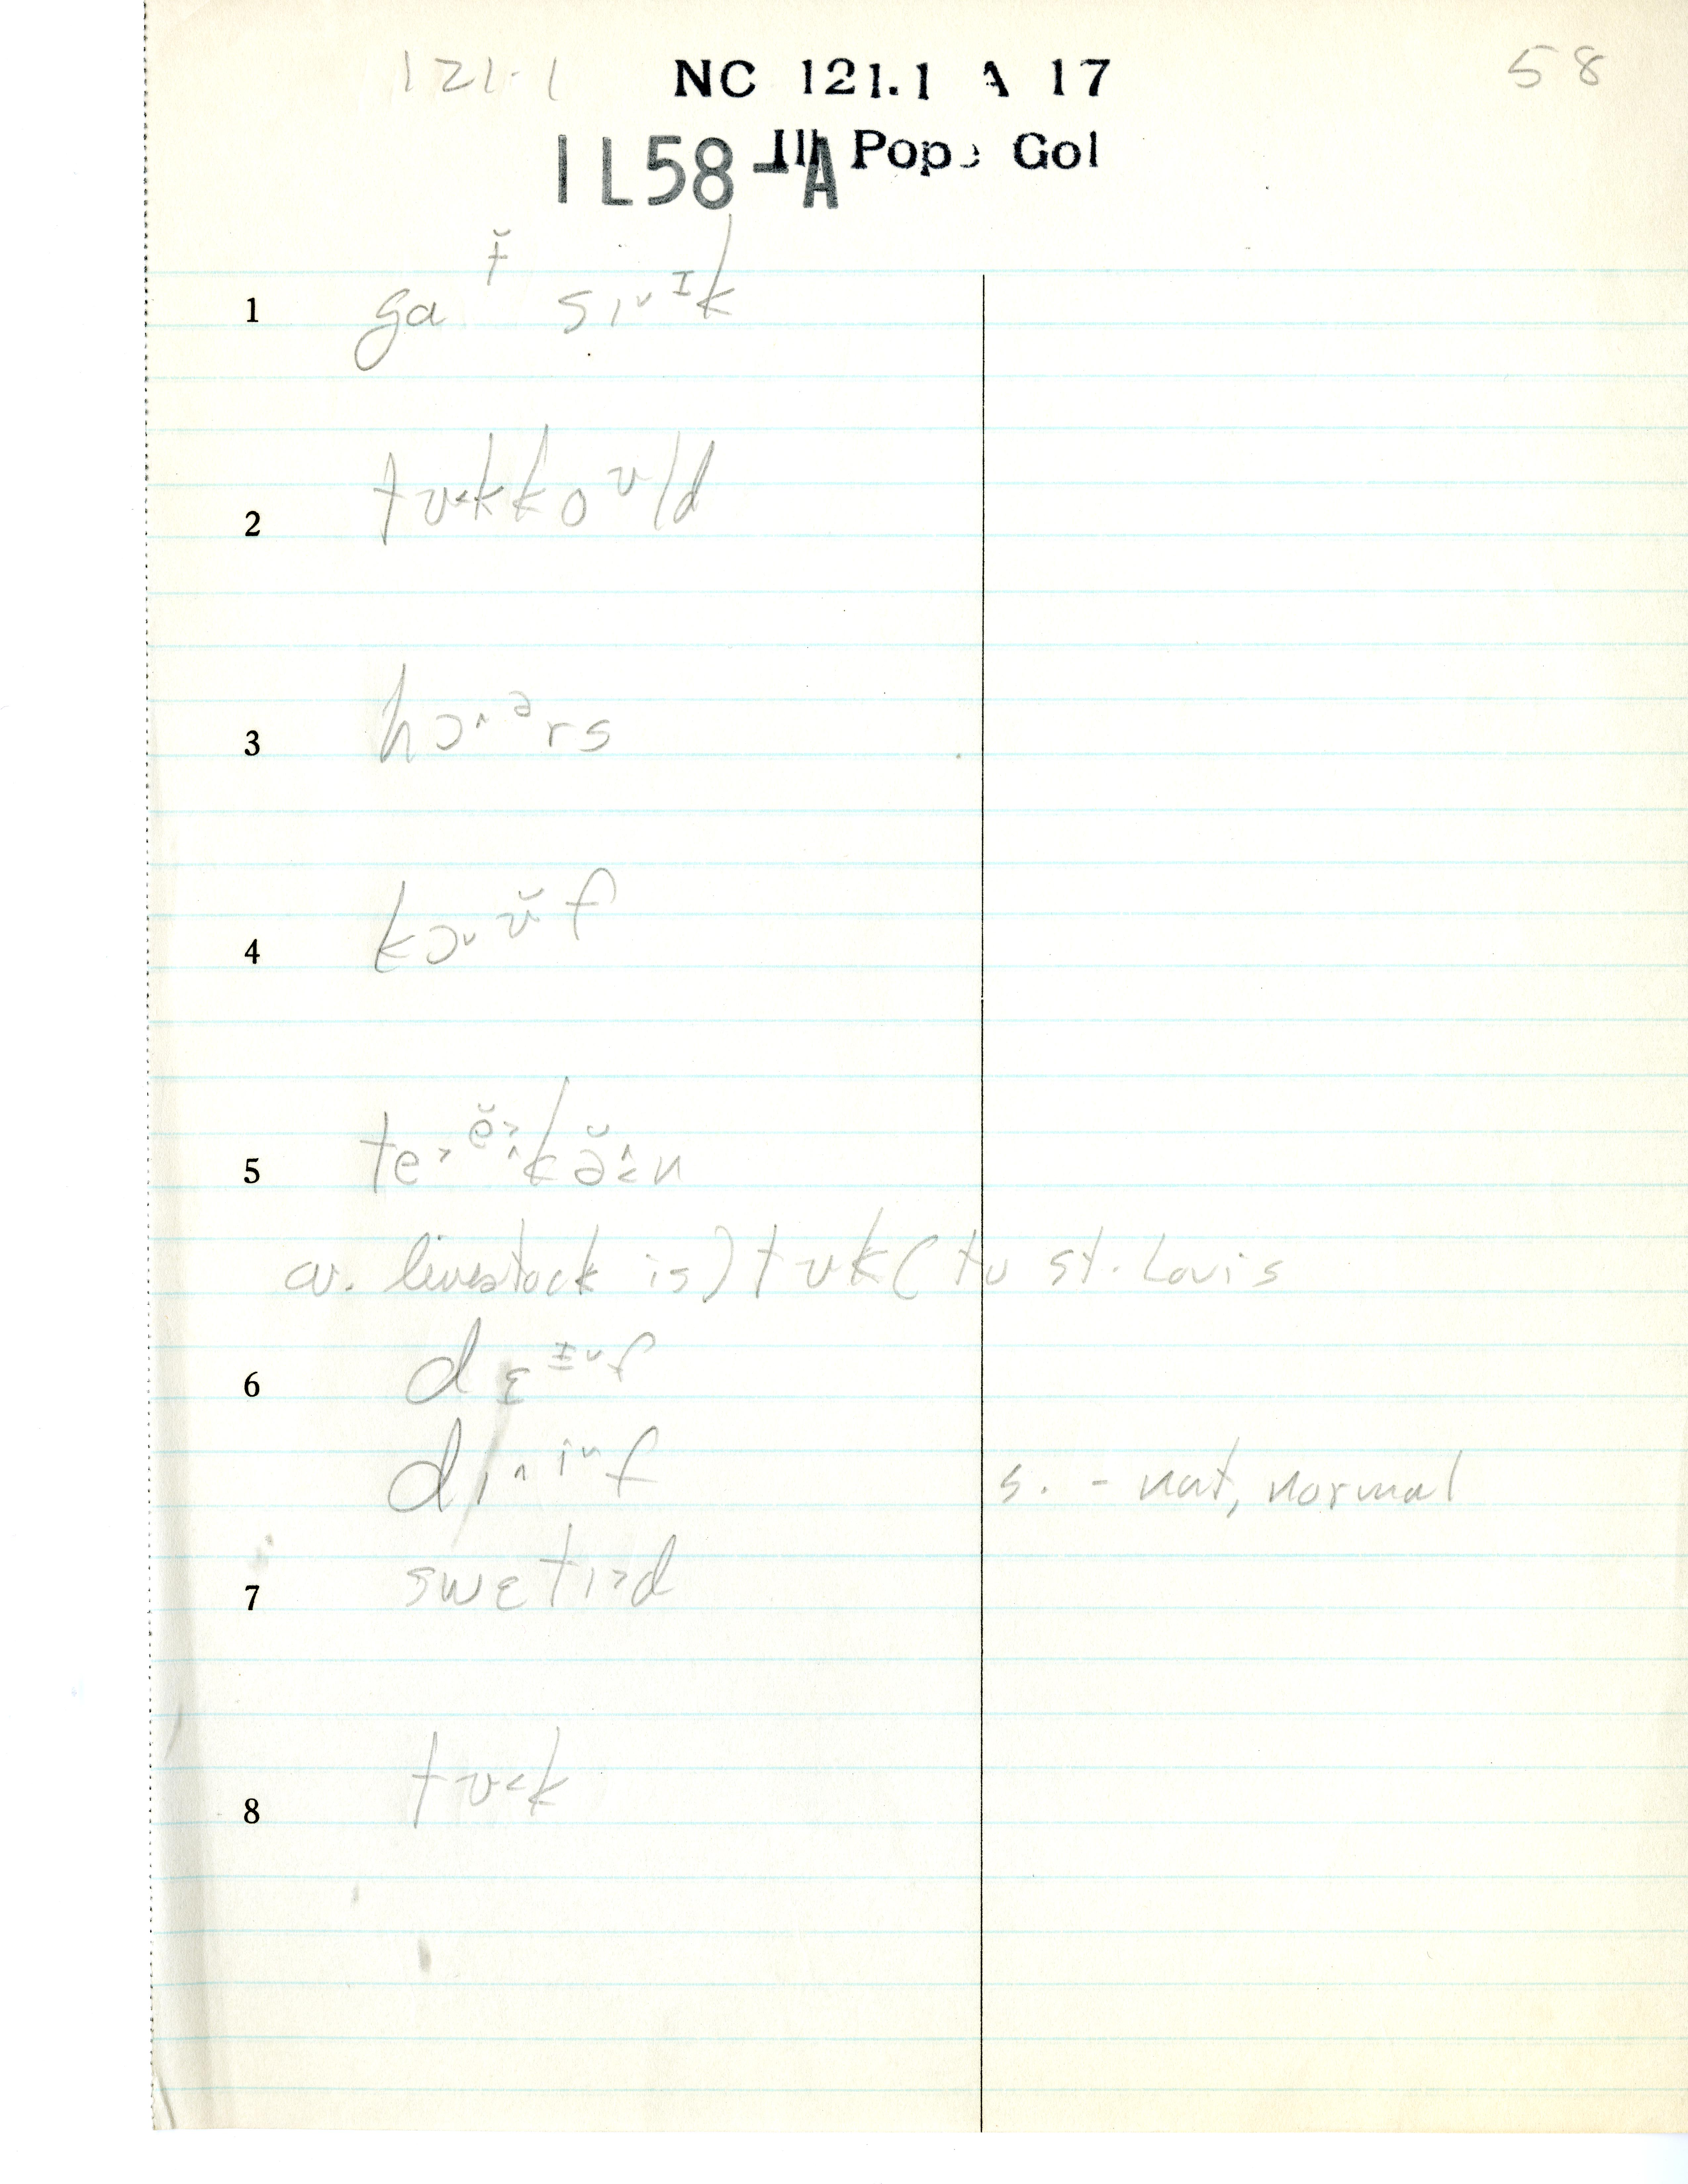 121.1 NC 121.1 A 17 58
IL58-A Ill Pope Gol
1 ga sɪ˅ᴵk
2 tʊ˂kkoᶷld
3 hɔ˄ᵊrs
4 kɔ˅ᶷ̆f
5 te˃ĕ˃˄kə̆n
cv. livestock is) tʊk (to St. Louis
6 dɛᶤ˅f
dɪ˄i˅f s. - nat, normal
7 swɛtɪ˃d
8 tʊ˂k